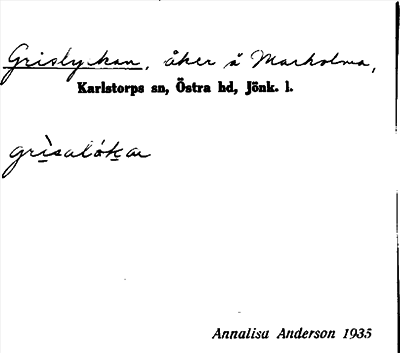 Grislyckan, åker å Marholma,
Karlstorps sn, Östra hd, Jönk. l.
grìsalókar
Annalisa Anderson 1935